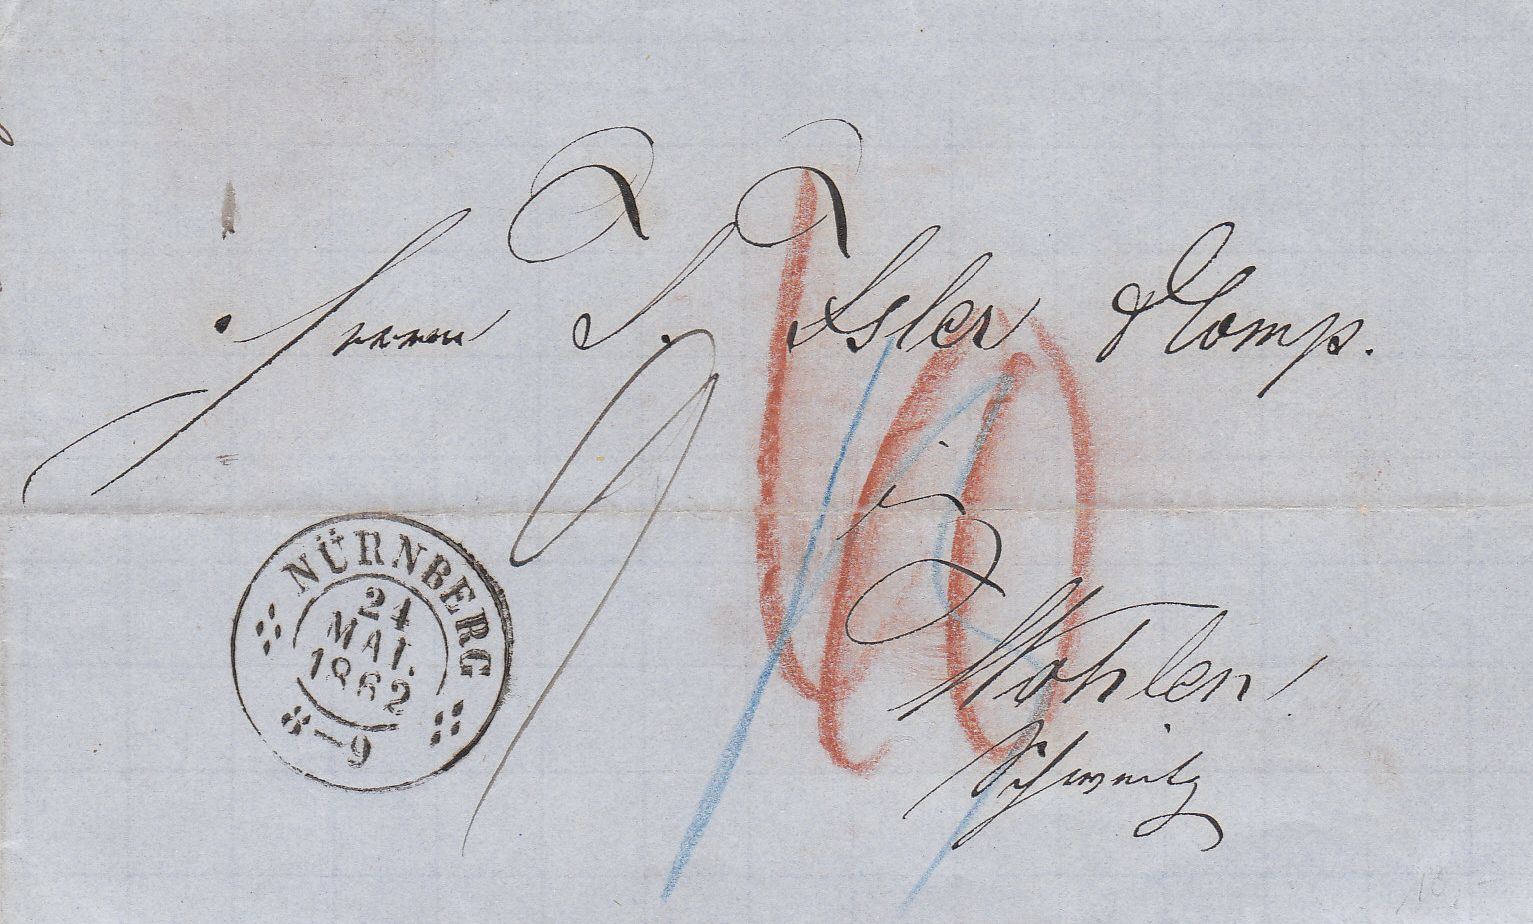 Herrn J. Isler & Comp.
Wohlen
Schweitz
NÜRNBERG
21
MAI.
1862
9
40
9